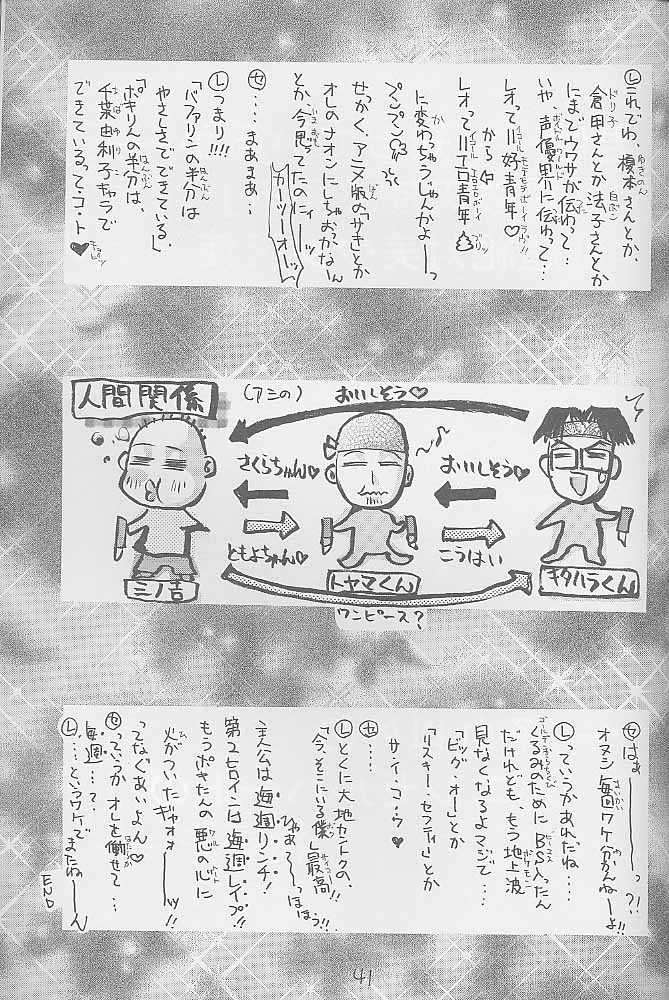 Ⓛこれでわ、榎本さんとか、
倉田さんとか法子さんとか
にまでウワサが伝わって…
いや、声優界に伝わって…
レオって=好青年♡
から
レオって=エロ青年
に変わっちゃうじゃんかよーーっ
プンプン
せっかく、アニメ版の「サキ」とか
オレのナオンにしちゃおっかなーん
とか今思ってたのにィーーッ
カーツーオーッ
㋝…まあまあ…
Ⓛつまり!!!
「バファリンの半分は
やさしさでできている」
「ポキりんの半分は、
千葉由利子キャラで
できているってコ・ト♥
人間関係
(アシの)
おいしそう♡
さくらちゃん♡
おいしそう♡
ともよちゃん♡
こうはい
ミノ吉
トヤマくん
キタハラくん
ワンピース?
㋝はぁーーーっ?!
オヌシ毎回ワケ分かんねーよ!!
Ⓛっていうかあれだね…
くるみのためにBS入ったん
だけれども、もう地上波
見なくなるよマジで…
「ビッグ・オー」とか
「リスキー・セフティー」とか
サ・イ・コ・ウ♥
㋝……
Ⓛとくに大地セントクの、
「今、そこにいる僕」最高!!
ひゃあて〜っほほう!!
主人公は毎週リンチ!
第2ヒロインは毎週レイプ!!
もうポキたんの悪の心に
火がついたギャオォーーッ!!
ってなぐあいよん♡
㋝っていうかオレを働せて…
毎週…?
Ⓛ…というワケでまたねーーん
END
41